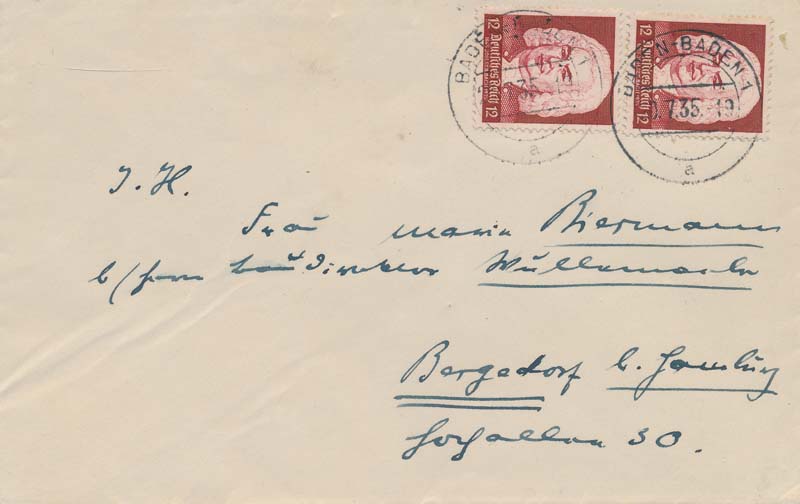 12 Deutsches Reich 12
12 Deutsches Reich 12
BADEN-BADEN 1
.35. 19
a
BADEN-BADEN 1
7.35. 19
a
I. H.
Frau Maria Biermann
b/Herrn Baudirektor
Bergedorf b. Hamburg
30.